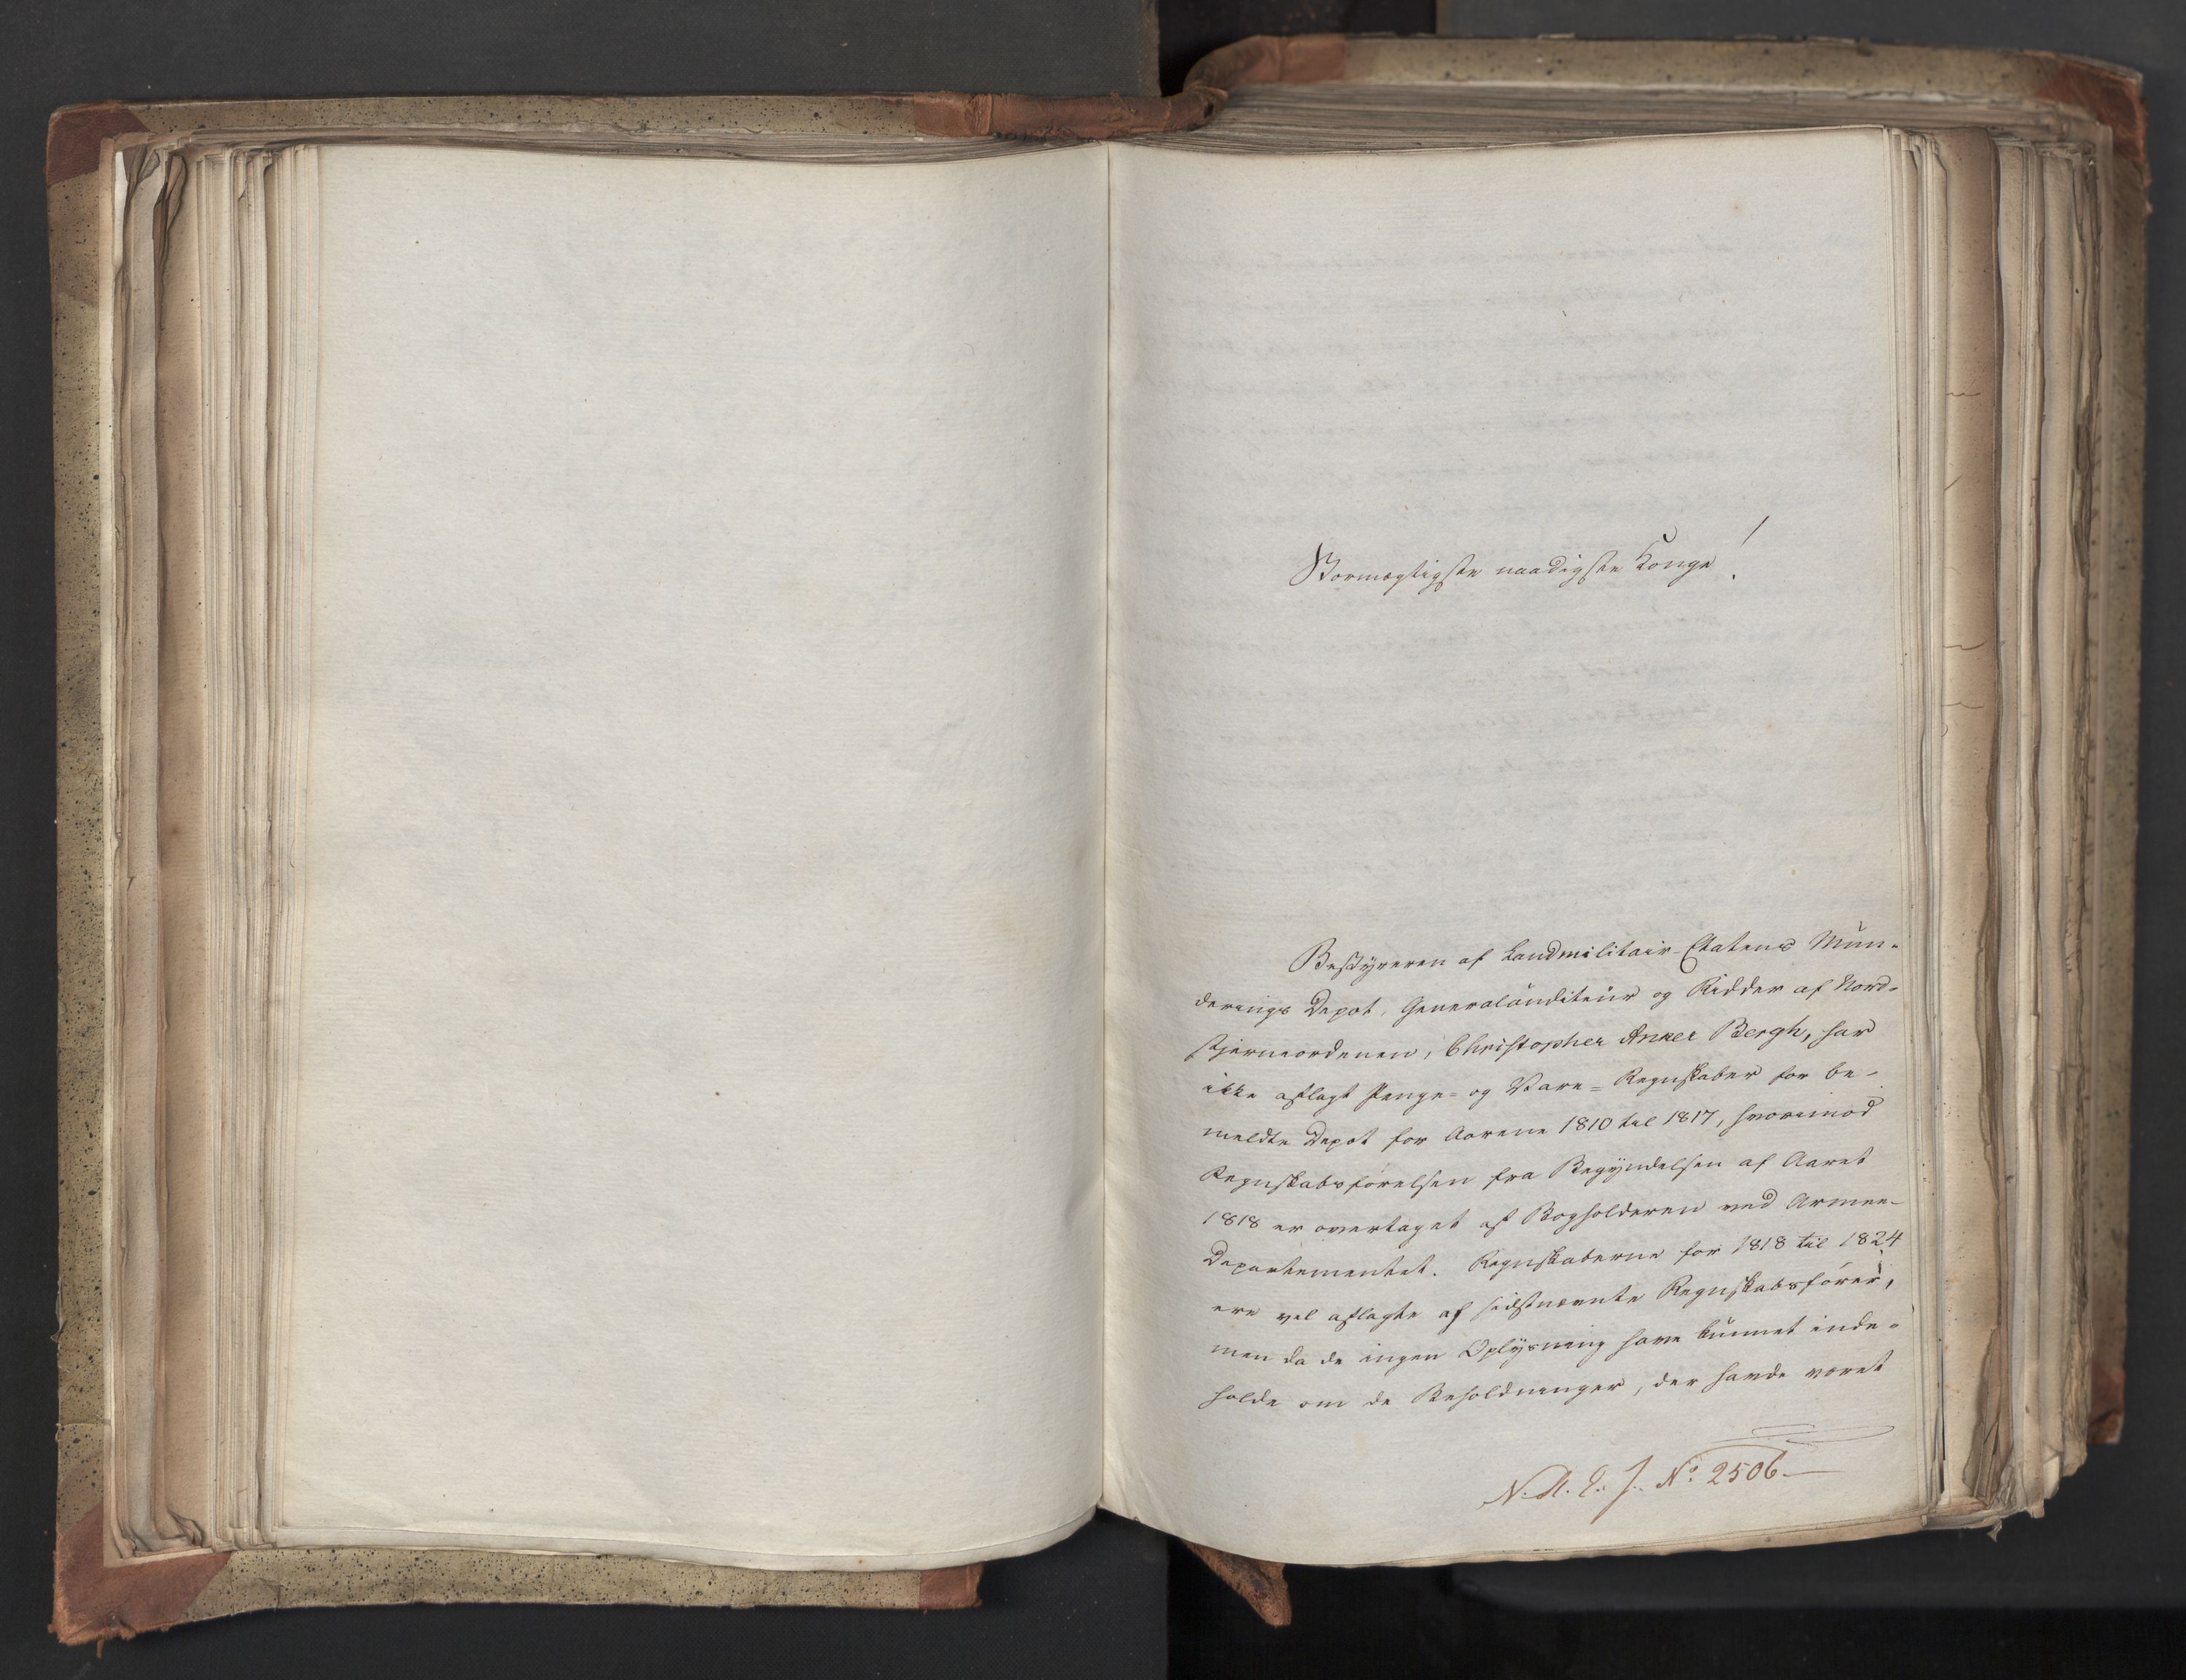 Stormægtigste naadigste Konge!
Bestyreren af Landmilitair-Etatens Mun-
derings Depot, Generalauditeur og Ridder af Nord-
stjerneordenen, Christopher Anker Bergh, har
ikke aflagt Penge- og Vare-Regnskaber for be-
meldte Depot for Aarene 1810 til 1817, hvorimod
Regnskabsførelsen fra Begyndelsen af Aaret
1818 er overtaget af Bogholderen ved Armee-
Departementet. Regnskaberne for 1818 til 1824
ere vel aflagte af sidstnævnte Regnskabsfører,
men da de ingen Oplysning have kunnet inde-
holde om de Beholdninger, der havde været
N. A. E. J. No. 2506.